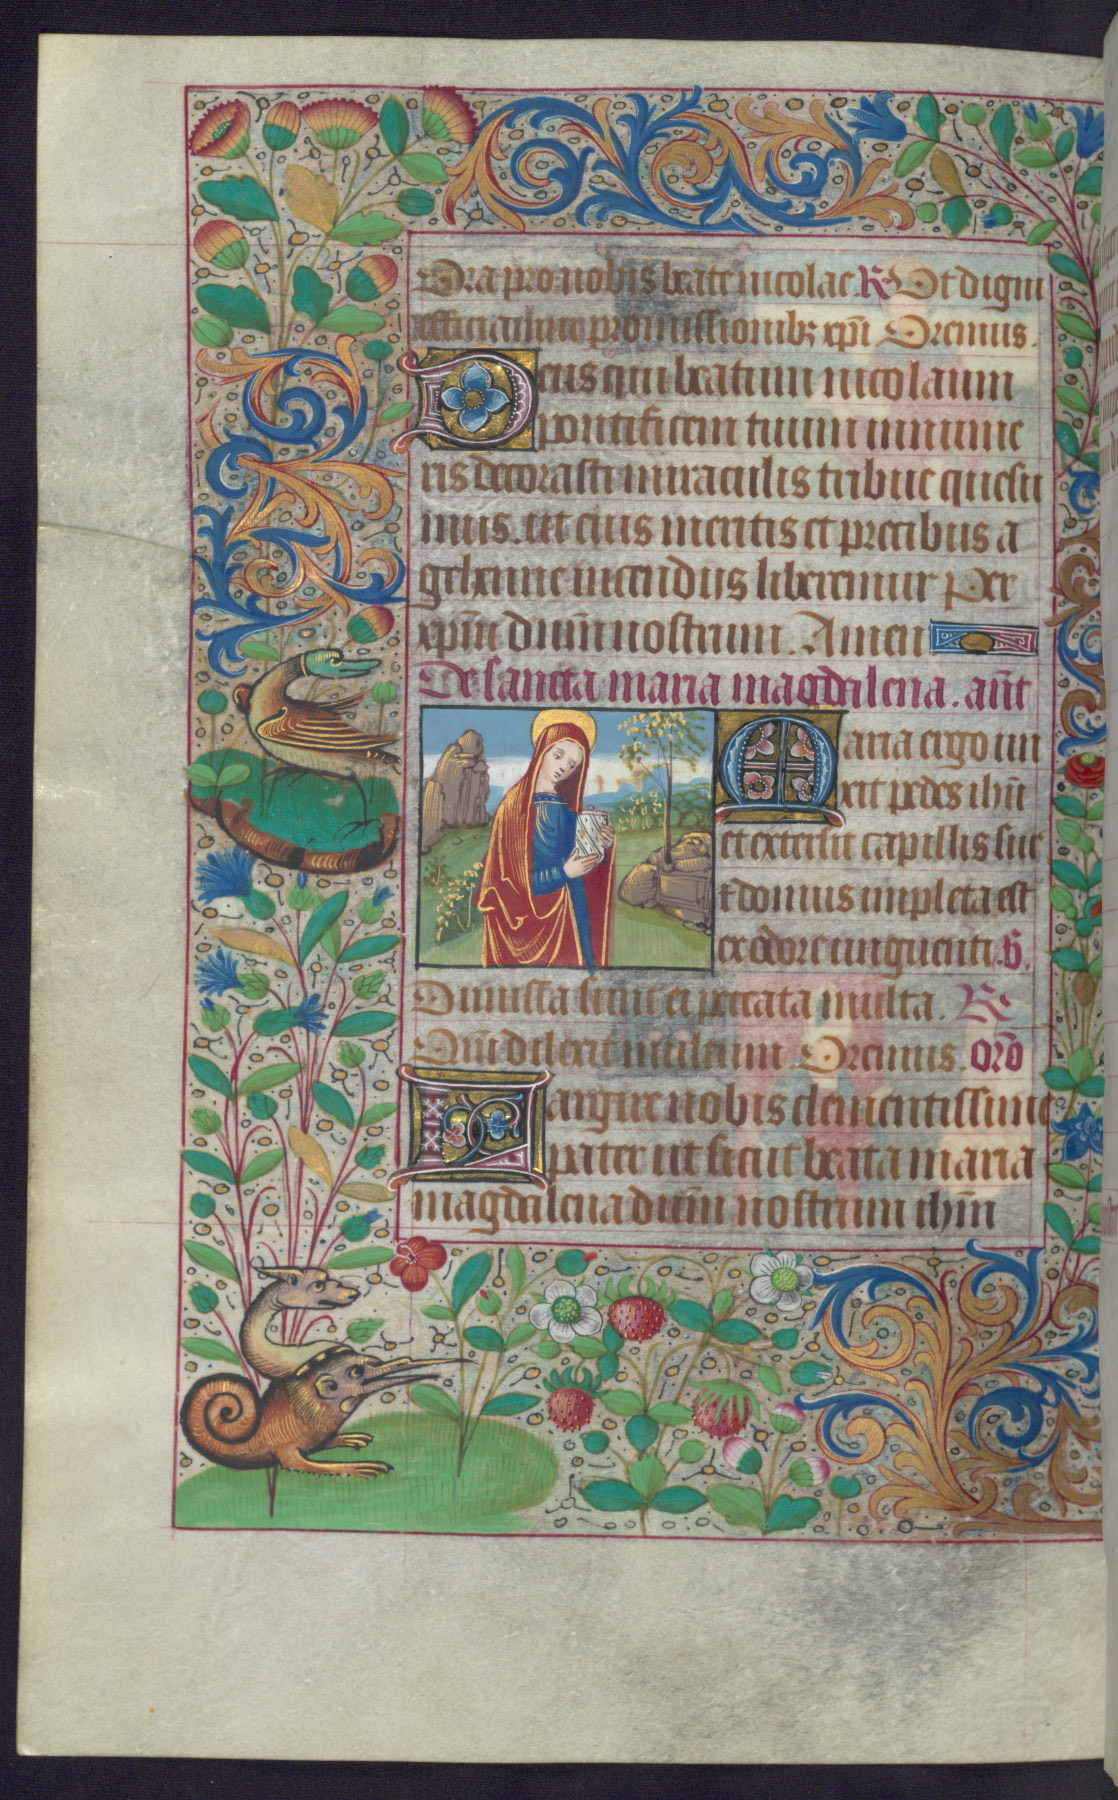 Ora pro nobis beate nicolae. R. Ut digni
efficiamur promissionibꝫ xpi Oremus.
Deus qui beatum nicolaum
pontificem tuum innume
ris decorasti miraculis tribue quesu
mus. ut eius meritis et precibus a
gehenne incendiis liberemur Per
xpm dnm nostrum. Amen
De sancta maria magdalena. ant
Maria ergo un
xit pedes ihu
et extersit capillis sui
et domus impleta est
ex odore unguenti.
Dimissa sunt ei peccata multa. R.
Qm dilexit multum Oremus. oro
Largire nobis clementissime
pater ut sicut beata maria
magdalena dnm nostrum ihm